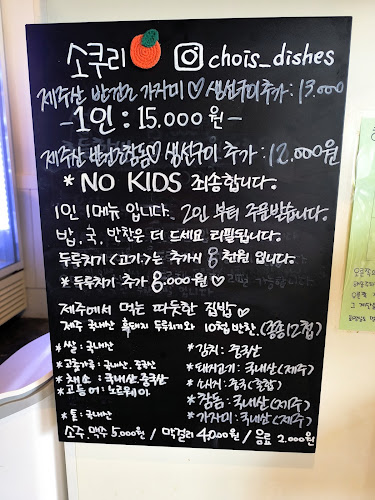 소쿠리 chois_dishes
제주산 반건조 가자미♡ 생선구이 추가 : 13.000
- 1인 : 15.000원 -
제주산 반건조참돔♡ 생선구이 추가 : 12.000원
* NO KIDS 죄송합니다.
1인 1메뉴 입니다. 2인 부터 주문받습니다.
밥, 국, 반찬은 더 드세요 리필됩니다.
두루치기 <고기>는 추가시 8천원 입니다.
* 두루치기 추가 8.000원♡
제주에서 먹는 따듯한 집밥♡
제주 국내산 흑돼지 두루치기와 10첩 반찬.
* 쌀 : 국내산
* 고춧가루 : 국내산. 중국산
* 채소 : 국내산. 중국산
* 고등어 : 노르웨이
* 톳 : 국내산
* 김치 : 중국산
* 돼지고기 : 국내산(제주)
* 참돔 : 국내산(제주)
* 가자미 : 국내산(제주)
소주. 맥주 5.000원 / 막걸리 4.000원 / 음료 2.000원